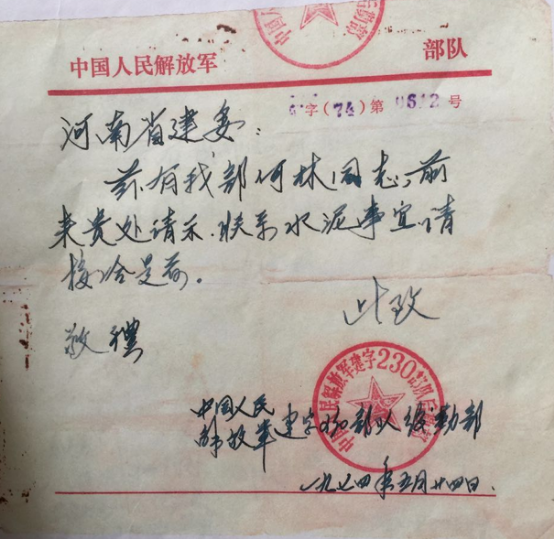 中国人民解放军 部队
字(74)第0612号
河南省建委:
兹有我部何林同志,前
来贵处请示、联系水泥事宜,请
接洽是荷。
此致
敬礼
中国人民解放军建字230部队后勤部
中国人民
解放军 建字 部队后勤部
一九七四年五月廿四日